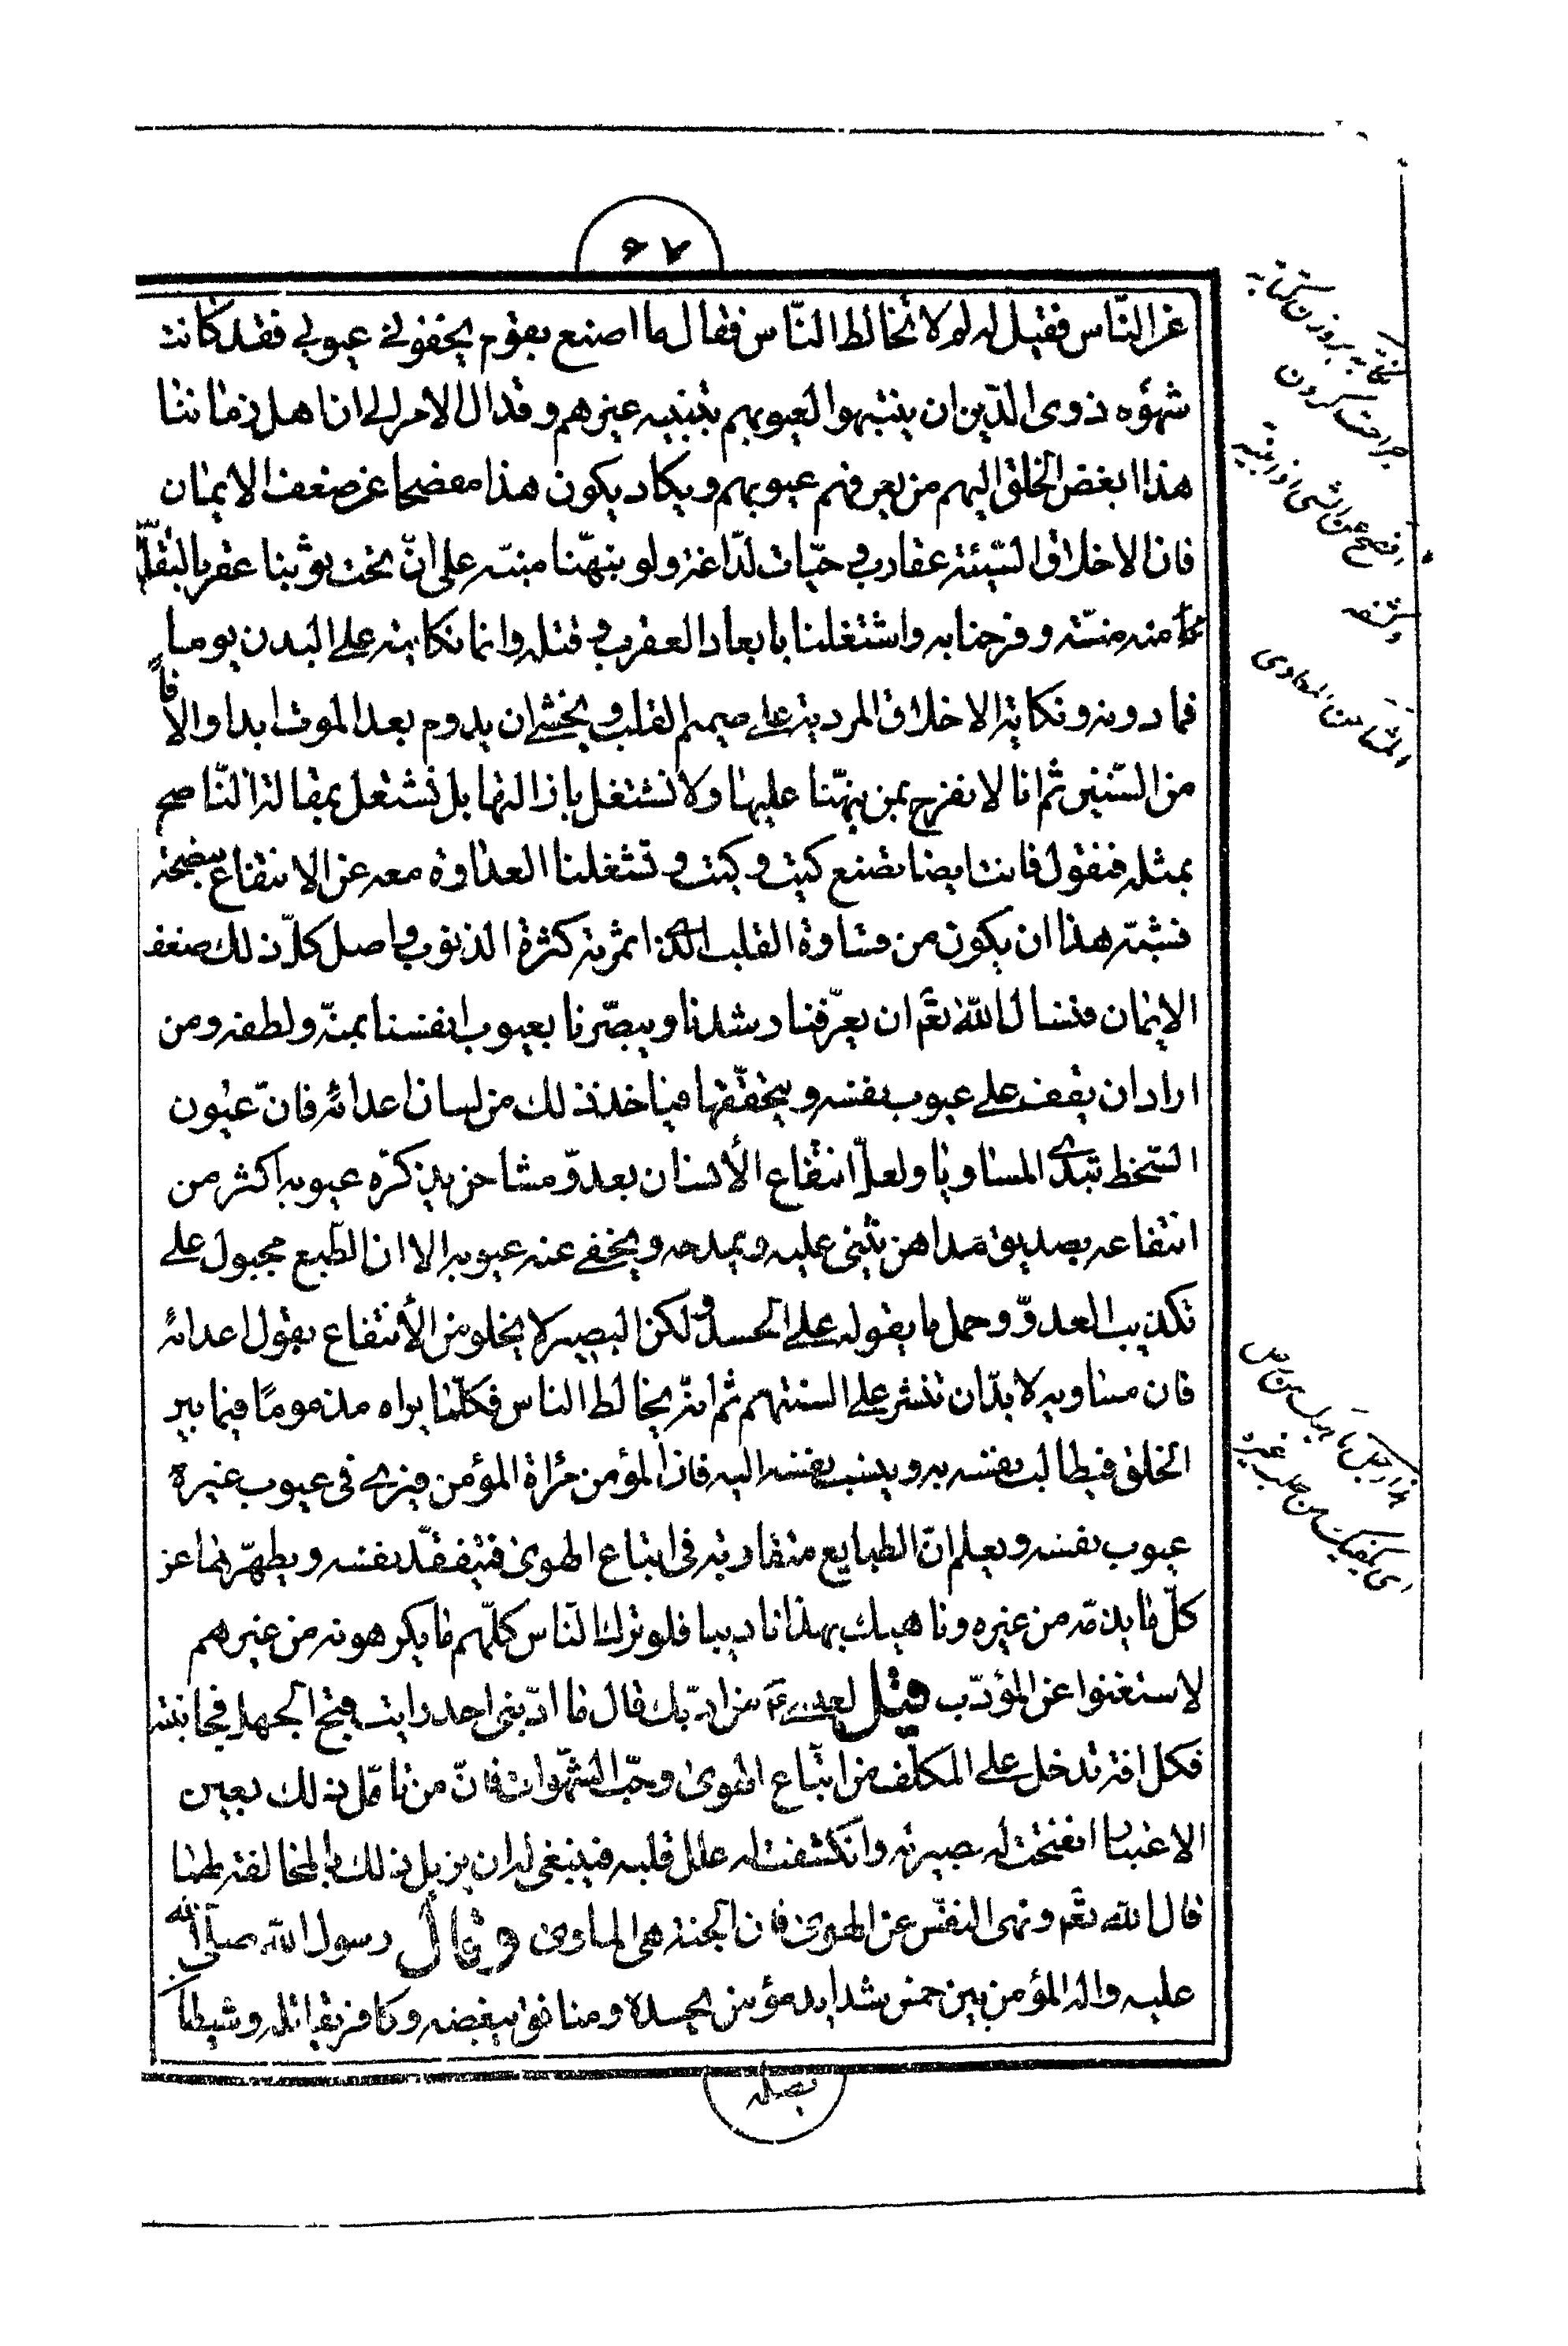 ٦٧
عن النّاس فقيل له لم لا تخالط النّاس فقال ما اصنع بقوم يخفونى عيوبى فقد كانت
شهوه ذوى الدّين ان ينتبهوا لعيوبهم بتنبيه غيرهم و قد ال الامر الى ان اهل زماننا
هذا ابغض الخلق اليهم من يعرفهم عيوبهم و يكاد يكون هذا مفضحا عن ضعف الايمان
فان الاخلاق السّيئة عقارب و حيّات لدّاغة و لو نبهّنا منبّه على انّ تحت ثوبنا عقربا لتقلّدنا
منه منّة و فرحنا به و اشتغلنا بابعاد العقرب و قتله و انما نكايته على البدن يوما
فما دونه و نكاية الاخلاق المردية على صميم القلب و يخشى ان يدوم بعد الموت ابدا و الافا
من السّنين ثم انا لا نفرح بمن ينبهّنا عليها و لا نشتغل بازالتها بل نشتغل بمقالة النّاصح
بمثله فنقول فانت ايضا تصنع كيت و كيت و تشغلنا العداوة معه عن الانتفاع بنصحه
نشبّه هذا ان يكون من قساوة القلب الّتى اثمرته كثرة الذنوب و اصل كلّ ذلك ضعف
الايمان فنسال اللّه تعم ان يعرّفنا رشدنا و يبصّرنا بعيوب انفسنا بمنّه و لطفه و من
اراد ان يقف على عيوب نفسه و يتحقّقها فياخذ ذلك من لسان اعدائه فان ّعيون
السّخط تبدى المساويا و لعلّ انتفاع الأنسان بعدوّ مشاحن يذكرّه عيوبه اكثر من
انتفاعه بصديق مداهن يثنى عليه و يمدحه و يخفى عنه عيوبه الا ان الطّبع مجبول على
تكذيب العدوّ و حمل ما يقوله على الحسد و لكن البصير لا يخلو من الأنتفاع بقول اعدائه
فان مساويه لا بدّ ان تنشر على السنتهم ثم انّه يخالط الناس فكلّما يراه مذمومًا فيما بين
الخلق فيطالب نفسه به و ينسب نفسه اليه فان المؤمن مرأة المؤمن فيرى فى عيوب غيره
عيوب نفسه و يعلم انّ الطبايع متقاربة فى اتباع الهوى فيتفقّد نفسه و يطهّرها عن
كلّ ما يذمّه من غيره و ناهيك بهذا تاديبا فلو ترك النّاس كلّهم ما يكرهونه من غيرهم
لاستغنوا عن المؤدّب قيل لعيسى ع من ادّبك قال ما ادّبنى احد رايت قبح الجهل فجانبته
فكل افة تدخل على المكلّف من اتّباع الهوى و حبّ الشّهوات فانّ من تامّل ذلك بعين
الاعتبار انفتحت له بصيرته و انكشفت له علل قلبه فينبغى له ان يزيل ذلك بالمخالفة لها
قال اللّه تعم و نهى النفّس عن الهوى فان الجنة هى الماوى و قال رسول اللّه صلّى اللّه
عليه و اله المؤمن بين خمس شدايد مؤمن يحسده و منافق يبغضه و كافر يقاتله و شيطا
يضلّه